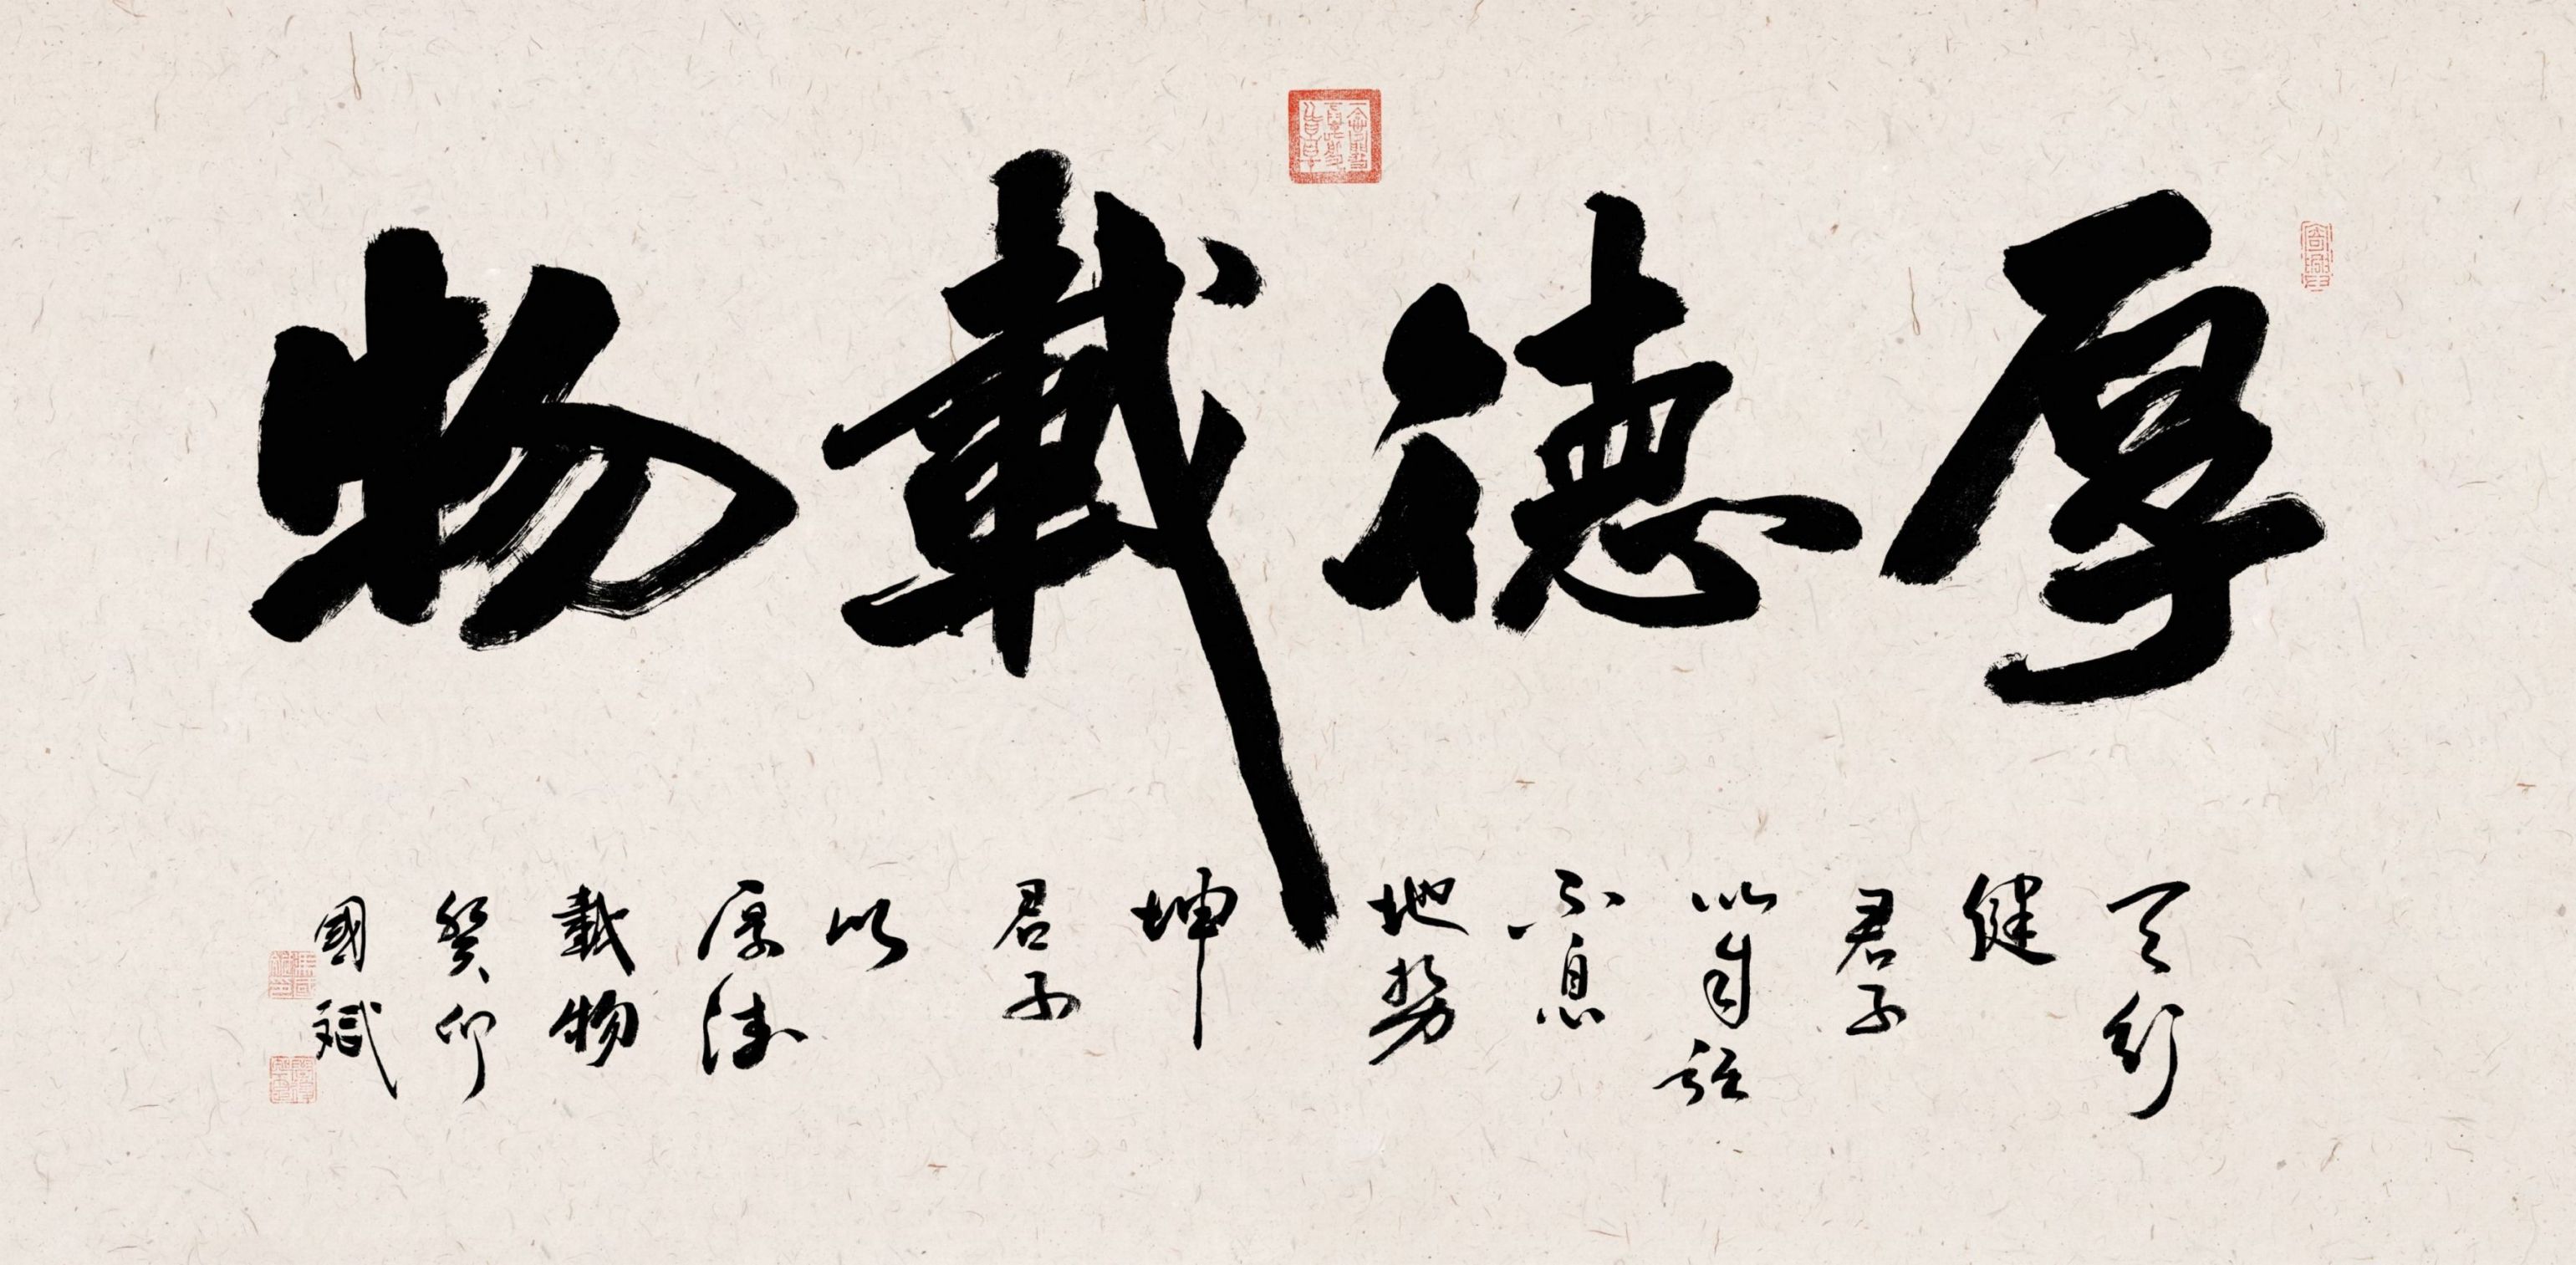 厚德載物
天行
健
君子
以自強
不息
地勢
坤
君子
以
厚德
載物
癸卯
國斌